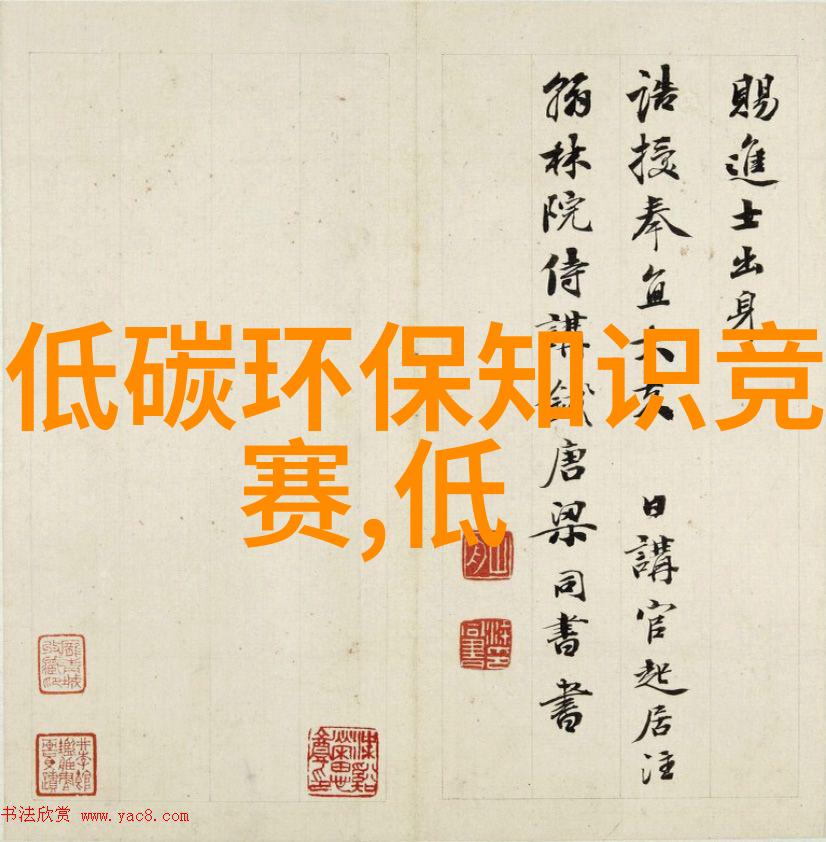 賜進士出身
誥授奉直大夫 日講官起居注
翰林院侍講錢唐梁同書書
低碳环保知识竞
赛,低
书法欣赏 www.yac8.com